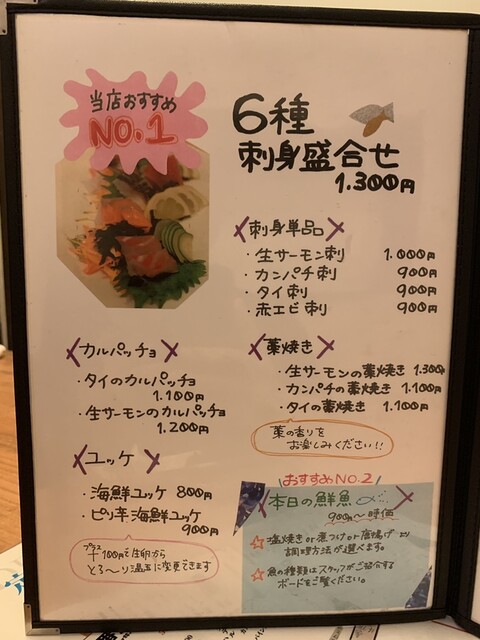 当店おすすめ
NO.1
6種
刺身盛合せ
1.300円
刺身単品
・生サーモン刺 1.000円
・カンパチ刺 900円
・タイ刺 900円
・赤エビ刺 900円
カルパッチョ
・タイのカルパッチョ
1.100円
・生サーモンのカルパッチョ
1.200円
藁焼き
・生サーモンの藁焼き 1.300
・カンパチの藁焼き 1.100円
・タイの藁焼き 1.100円
藁の香りを
お楽しみください!!
ユッケ
・海鮮ユッケ 800円
・ピリ辛海鮮ユッケ
900円
プラス100円で生卵から
とろ〜り温玉に変更できます
おすすめNO.2
本日の鮮魚
900円〜時価
☆塩焼きor煮つけor唐揚げ より
調理方法が選べます。
☆魚の種類はスタッフがご紹介する
ボードをご覧ください。